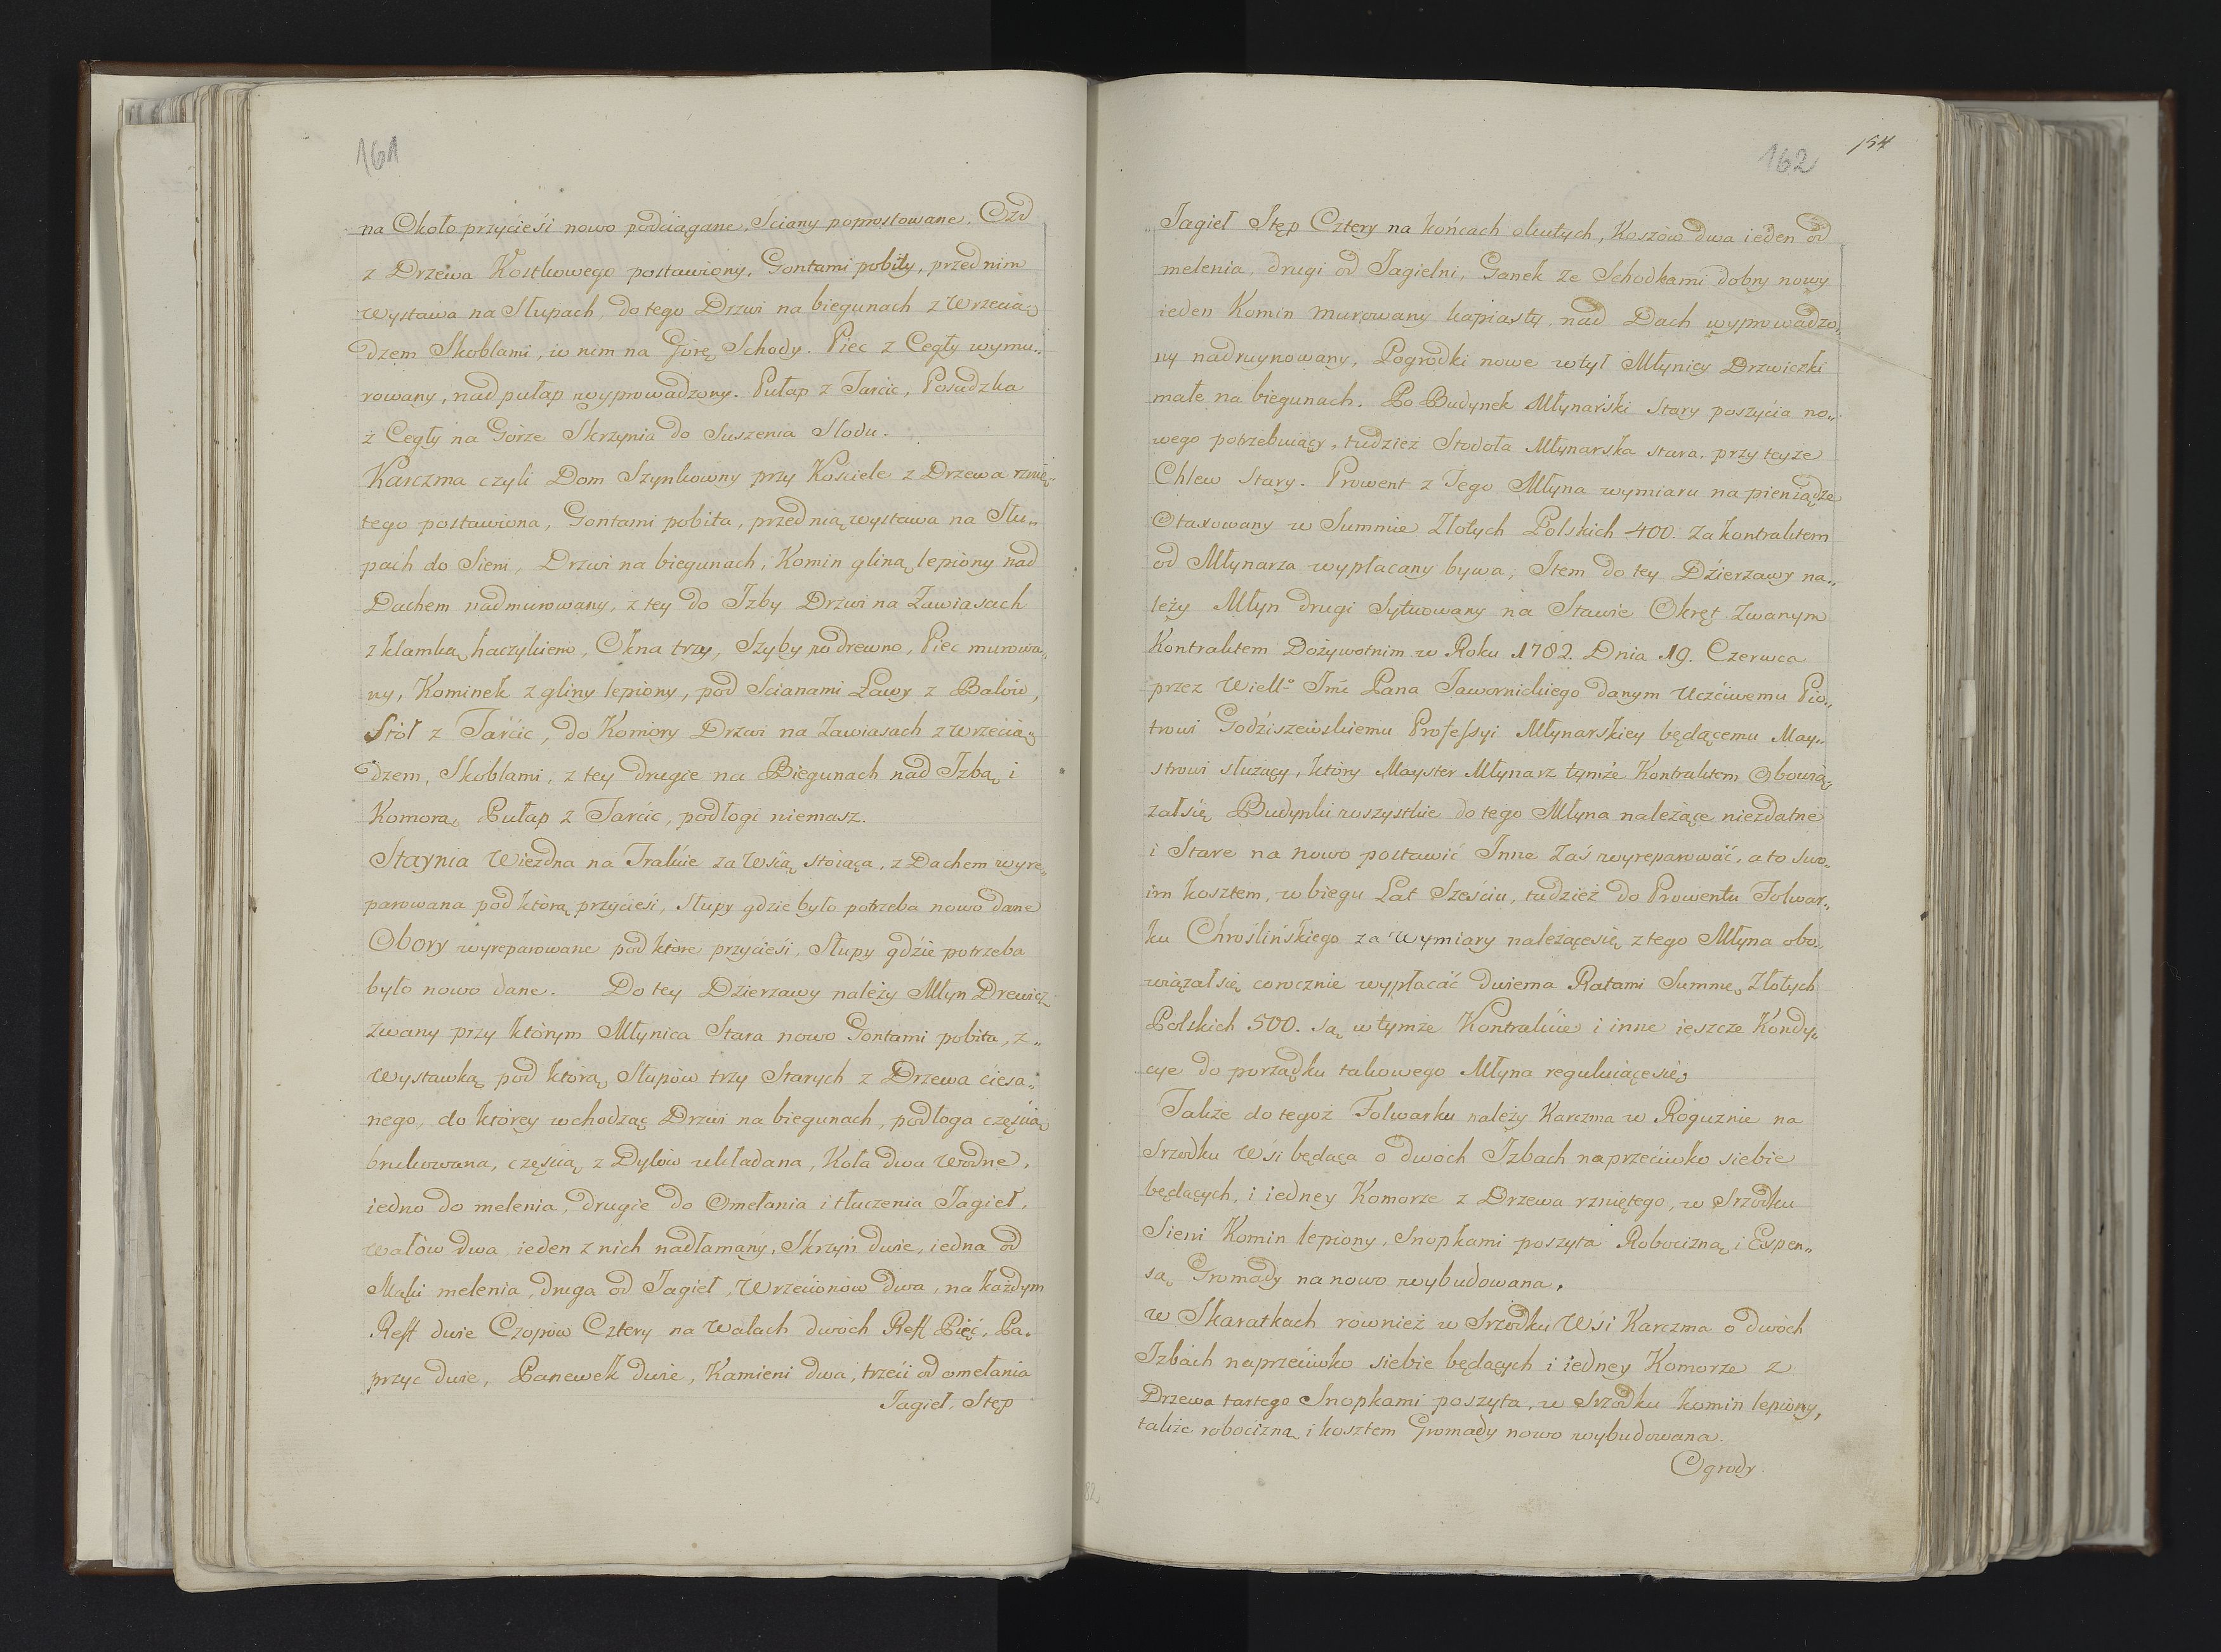 161
na Około przycieśi nowo podciągane, Sciany poprostowane. Ozd
z Drzewa Kostkowego postawiony, Gontami pobity, przed nim
Wystawa na Słupach, do tego Drzwi na biegunach z Wrzecią„
dzem Skoblami, w nim na Górę Schody. Piec z Cegły wymu„
rowany, nad pułap wyprowadzony. Pułap z Tarcic, Posadzka
z Cegły na Górze Skrzynia do Suszenia Słodu.
Karczma czyli Dom Szynkowny przy Kościele z Drzewa rznię„
tego postawiona, Gontami pobita, przed nią wystawa na Słu„
pach do Sieni, Drzwi na biegunach, Komin gliną lepiony nad
Dachem nadmurowany, z tey do Izby Drzwi na Zawiasach
z klamką haczykiem, Okna trzy, Szyby w drewno, Piec murowa„
ny, Kominek z gliny lepiony, pod Scianami Ławy z Balów,
Stół z Tarcic, do Komory Drzwi na Zawiasach z wrzecią„
dzem, Skoblami, z tey drugie na Biegunach nad Izbą i
Komorą Pułap z Tarcic, podłogi niemasz.
Staynia Wiezdna na Trakcie za Wsią stoiąca, z Dachem wyre„
parowana pod którą przycieśi, Słupy gdzie było potrzeba nowo dane
Obory wyreparowane pod które przycieśi, Słupy gdzie potrzeba
było nowo dane. Do tey Dzierzawy należy Młyn Drewicz
zwany przy którym Młynica Stara nowo Gontami pobita, z„
Wystawką pod którą Słupów trzy Starych z Drzewa ciesa„
nego, do którey wchodząc Drzwi na biegunach, podłoga częścią
brukowana, częścią z Dylów układana, Koła dwa Wodne,
iedno do melenia, drugie do Omełania i tłuczenia Jagieł,
Wałów dwa, ieden z nich nadłamany, Skrzyń dwie, iedna od
Mąki melenia, druga od Jagieł, Wrzecionów dwa, na każdym
Reff dwie Czopów Cztery na Wałach dwóch Reff Pięć, Pa„
przyc dwie, Panewek dwie, Kamieni dwa, trzeci od omełania
Jagieł, Stęp
162
154
Jagieł Stęp Cztery na końcach okutych, Koszów dwa ieden od
melenia, drugi od Jagielni, Ganek ze Schodkami dobry nowy
ieden Komin murowany kapiasty, nad Dach wyprowadzo„
ny nadruynowany, Pogrodki nowe w tył Młynicy Drzwiczki
małe na biegunach. Po Budynek Młynarski Stary poszycia no„
wego potrzebuiący, tudzież Stodoła Młynarska stara, przy teyże
Chlew Stary. Prowent z Tego Młyna wymiaru na pieniądze
Otaxowany w Summie Złotych Polskich 400. za kontraktem
od Młynarza wypłacany bywa, Item do tey Dzierzawy na„
leży Młyn drugi Sytuowany na Stawie Okręt Zwanym
Kontraktem Dożywotnim w Roku 1782. Dnia 19. Czerwca
przez Wiell.º Jmć Pana Jawornickiego danym Uczciwemu Pio„
trowi Godziszewskiemu Professyi Młynarskiey będącemu May„
strowi służący, który Mayster Młynarz tymże Kontraktem Obowią„
załsię Budynki wszystkie do tego Młyna należące niezdatne
i Stare na nowo postawić Inne zaś wyreparować, a to swo„
im kosztem, w biegu Lat Sześciu, tudzież do Prowentu Folwar„
ku Chroślińskiego za Wymiary należącesię z tego Młyna obo„
wiązałsię corocznie wypłacać dwiema Ratami Summę Złotych
Polskich 500. są w tymże Kontrakcie i inne ieszcze Kondy„
cye do porządku takowego Młyna reguluiącesię
Także do tegoż Folwarku należy Karczma w Roguznie na
Srzodku Wsi będąca o dwóch Izbach naprzeciwko siebie
będących, i iedney Komorze z Drzewa rzniętego, w Srzodku
Sieni Komin lepiony, Snopkami poszyta Robocizną i Expen„
są Gromady na nowo wybudowana.
w Skaratkach również w Srzodku Wsi Karczma o dwóch
Izbach naprzeciwko siebie będących i iedney Komorze z
Drzewa tartego Snopkami poszyta, w Srzodku komin lepiony,
także robocizną i kosztem Gromady nowo wybudowana.
Ogrody.